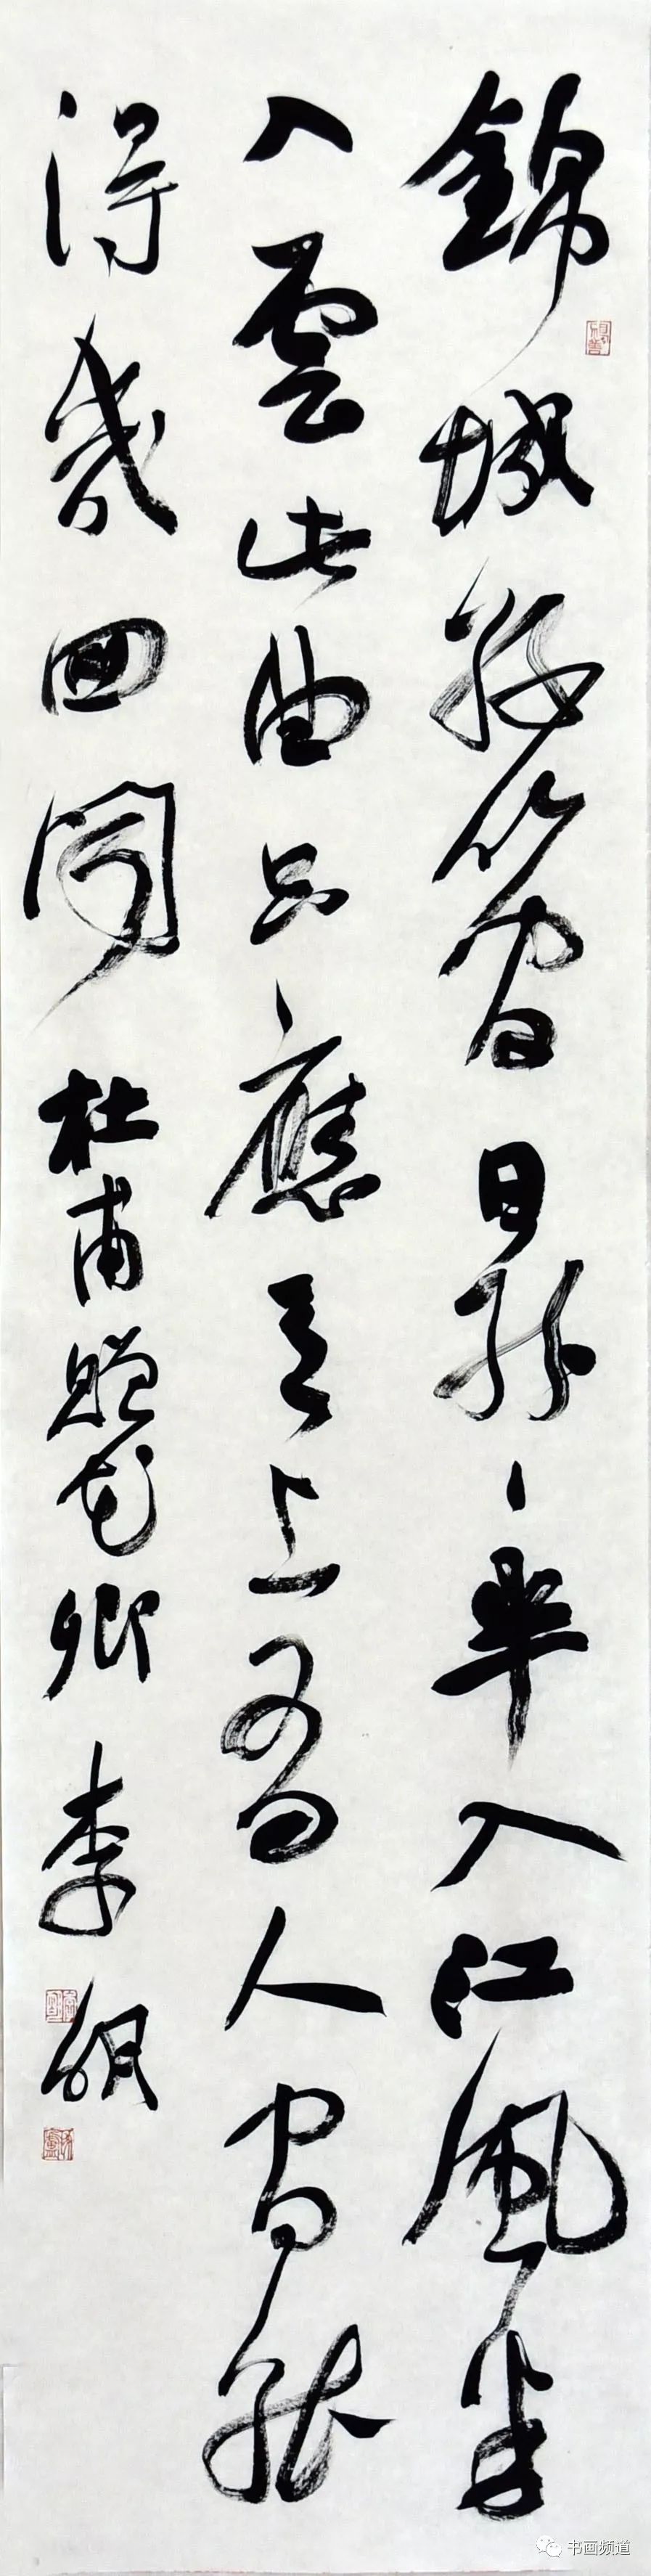 錦城絲管日紛〻半入江風半
入雲此曲只應天上有人間能
得幾回聞 杜甫贈花卿 李
书画频道